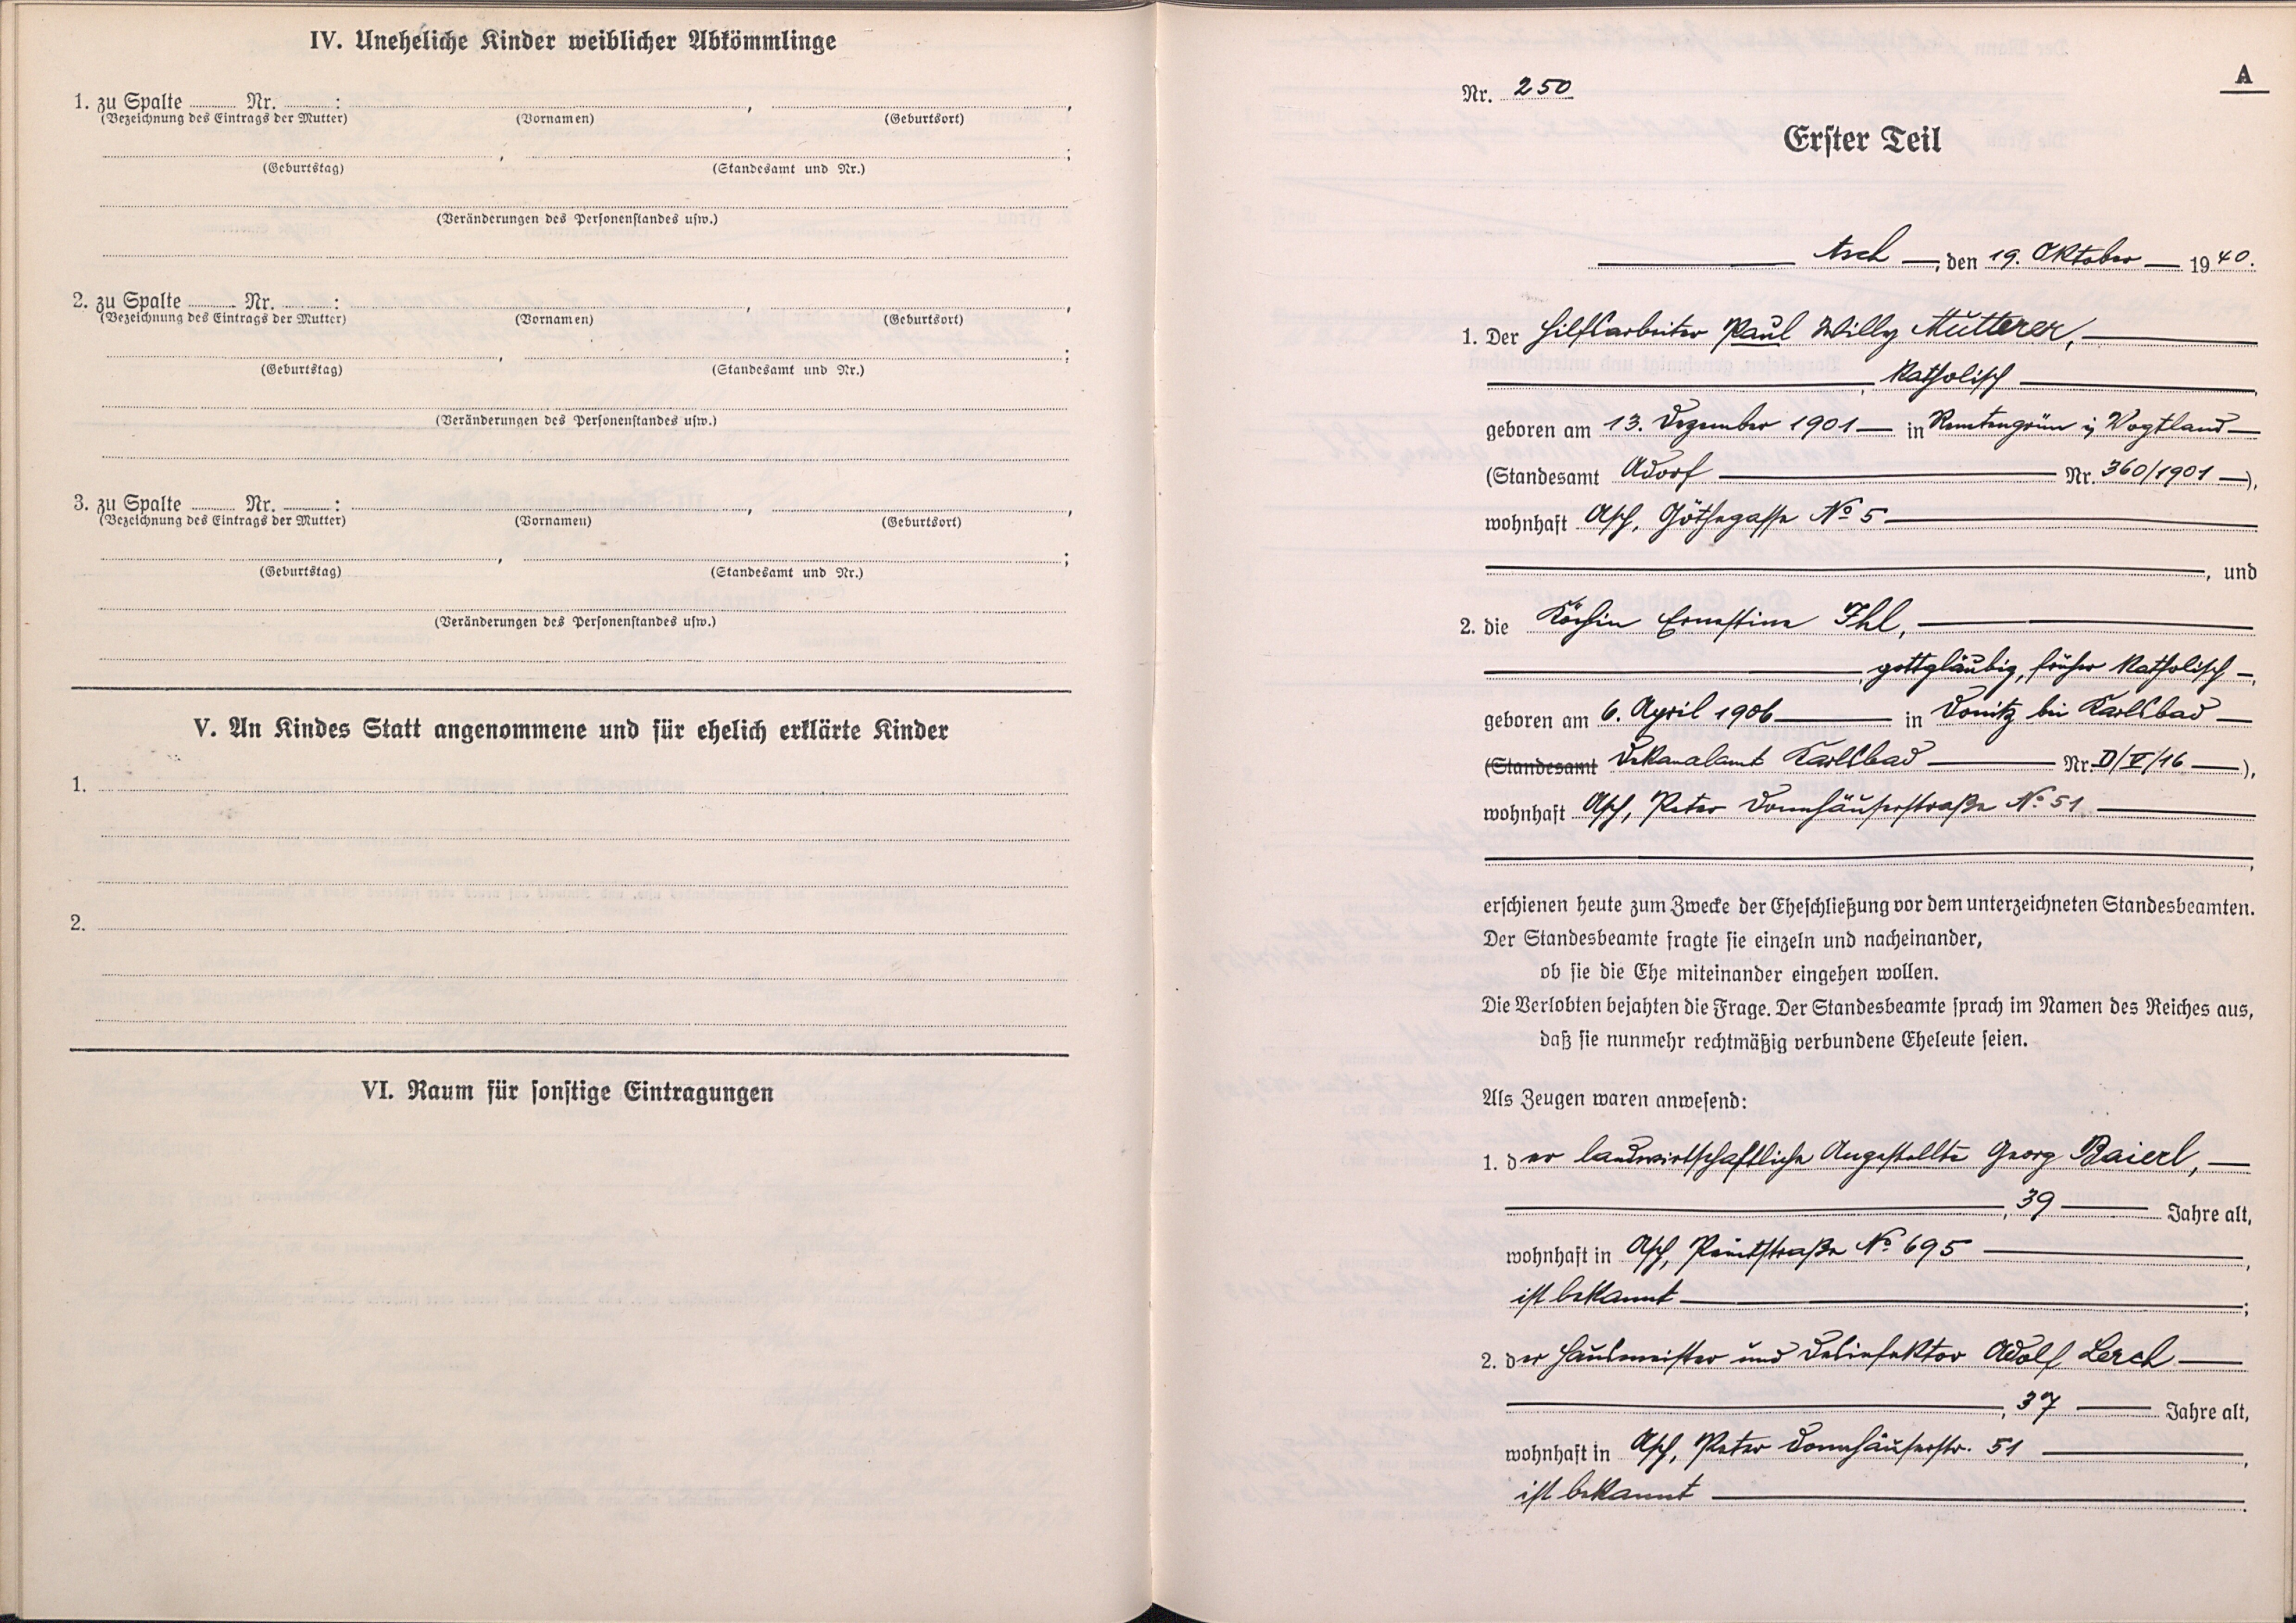 IV. Uneheliche Kinder weiblicher Abkömmlinge
1. zu Spalte ........ Nr. ........ : ........ , ........ ,
(Bezeichnung des Eintrags der Mutter) (Vornamen) (Geburtsort)
........ , ........ ;
(Geburtstag) (Standesamt und Nr.)
(Veränderungen des Personenstandes usw.)
2. zu Spalte ........ Nr. ........ : ........ , ........ ,
(Bezeichnung des Eintrags der Mutter) (Vornamen) (Geburtsort)
........ , ........ ;
(Geburtstag) (Standesamt und Nr.)
(Veränderungen des Personenstandes usw.)
3. zu Spalte ........ Nr. ........ : ........ , ........ ,
(Bezeichnung des Eintrags der Mutter) (Vornamen) (Geburtsort)
........ , ........ ;
(Geburtstag) (Standesamt und Nr.)
(Veränderungen des Personenstandes usw.)
V. An Kindes Statt angenommene und für ehelich erklärte Kinder
1.
2.
VI. Raum für sonstige Eintragungen
A
Nr. 250
Erster Teil
Asch, den 19. Oktober 1940.
1. Der Hilfsarbeiter Paul Willy Mutterer,
, katholisch ,
geboren am 13. Dezember 1901 in Remtengrün i. Vogtland
(Standesamt Adorf Nr. 360/1901),
wohnhaft Asch, Göthegasse No 5
, und
2. die Köchin Ernestine Ihl,
, gottgläubig, früher katholisch ,
geboren am 6. April 1906 in Donitz bei Karlsbad
(Standesamt Dekanalamt Karlsbad Nr. D/V/16),
wohnhaft Asch, Peter Donnhäuserstraße No 51
,
erschienen heute zum Zwecke der Eheschließung vor dem unterzeichneten Standesbeamten.
Der Standesbeamte fragte sie einzeln und nacheinander,
ob sie die Ehe miteinander eingehen wollen.
Die Verlobten bejahten die Frage. Der Standesbeamte sprach im Namen des Reiches aus,
daß sie nunmehr rechtmäßig verbundene Eheleute seien.
Als Zeugen waren anwesend:
1. der landwirtschaftliche Angestellte Georg Baierl,
, 39 Jahre alt,
wohnhaft in Asch, Peintstraße No 695 ,
ist bekannt ;
2. der Hausmeister und Desinfektor Adolf Lerch
, 37 Jahre alt,
wohnhaft in Asch, Peter Donnhäuserstr. 51 ,
ist bekannt .